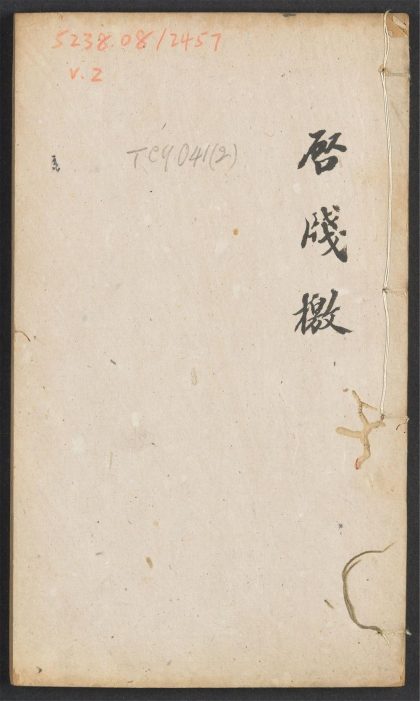 5238.08/2457
v.2
TC9041(2)
启牋檄